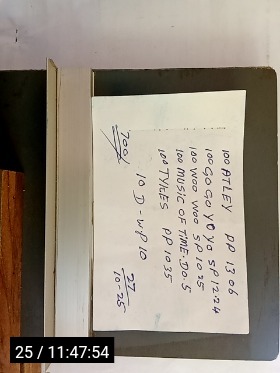 100 ATLEY PP 13 06
100 GO GO YO YO SP 12.24
100 WOO WOO SP 10 25
100 MUSIC OF TIME. DO. 5
100 TYLES PP 10 35
700/
10 D - WP 10
27
10-25
25 / 11:47:54